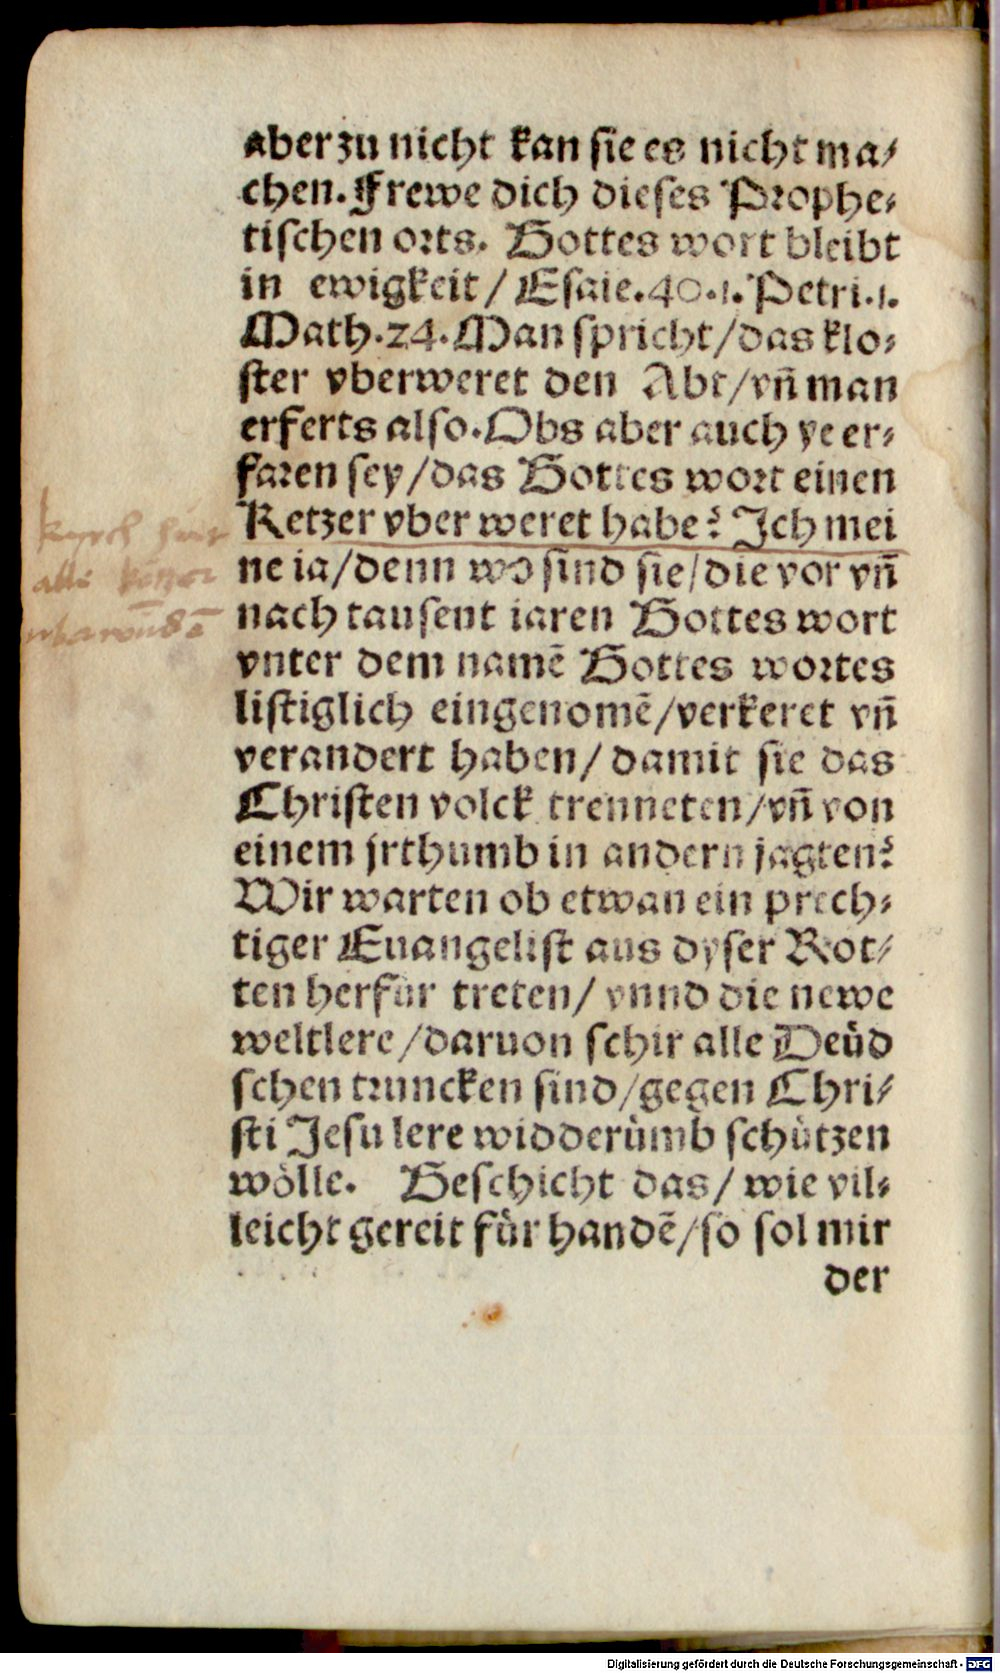 aber zu nicht kan sie es nicht ma⸗
chen. Frewe dich dieses Prophe⸗
tischen orts. Gottes wort bleibt
in ewigkeit / Esaie.40.1. Petri.1.
Math.24. Man spricht/das klo⸗
ster vberweret den Abt/vñ man
erferts also. Obs aber auch ye er⸗
faren sey/das Gottes wort einen
Ketzer vber weret habe? Ich mei
ne ia/denn wo sind sie/die vor vñ
nach tausent iaren Gottes wort
vnter dem namẽ Gottes wortes
listiglich eingenomẽ/verkeret vñ
verandert haben/ damit sie das
Christen volck trenneten/vñ von
einem jrthumb in andern jagten?
Wir warten ob etwan ein prech⸗
tiger Euangelist aus dyser Rot⸗
ten herfur treten/ vnnd die newe
weltlere/daruon schir alle Deüd
schen truncken sind/gegen Chri⸗
sti Jesu lere widderümb schützen
wölle. Geschicht das/ wie vil⸗
leicht gereit für handẽ/so sol mir
der
kyrch hat
alle ketzer
Digitalisierung gefördert durch die Deutsche Forschungsgemeinschaft - DFG